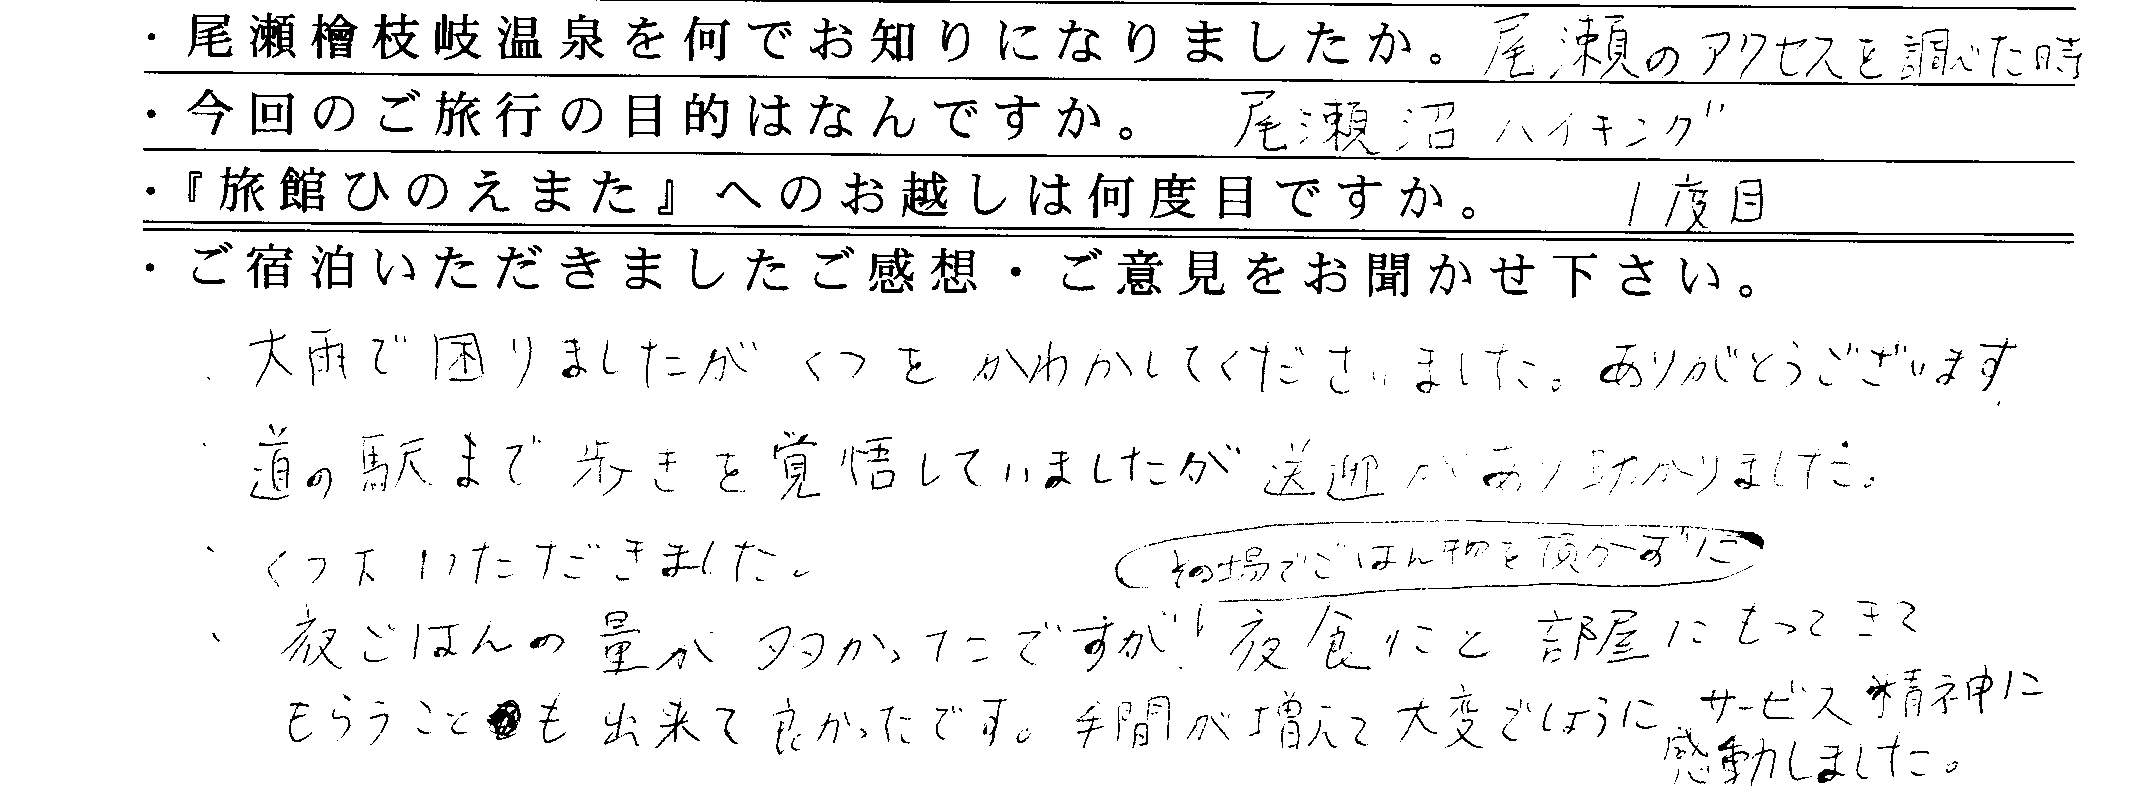 ・尾瀬檜枝岐温泉を何でお知りになりましたか。尾瀬のアクセスを調べた時
・今回のご旅行の目的はなんですか。 尾瀬沼ハイキング
・『旅館ひのえまた』へのお越しは何度目ですか。 1度目
・ご宿泊いただきましたご感想・ご意見をお聞かせ下さい。
・大雨で困りましたがくつをかわかしてくださいました。ありがとうございます。
・道の駅まで歩きを覚悟していましたが送迎があり助かりました。
・くつ下いただきました。
その場でごはん物を頂かずに
・夜ごはんの量が多かったですが、夜食にと部屋にもってきて
もらうことも出来て良かったです。手間が増えて大変でしょうに サービス精神に
感動しました。